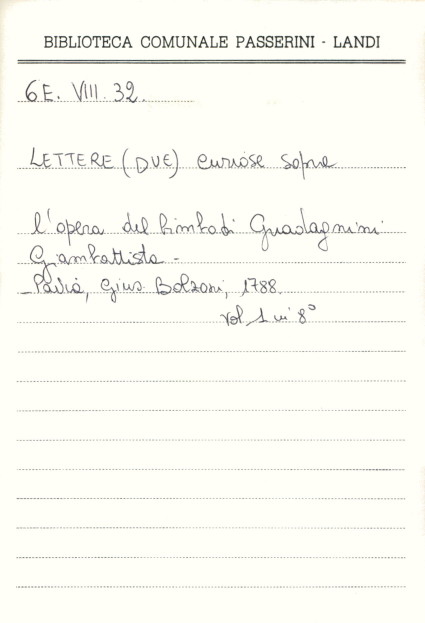 BIBLIOTECA COMUNALE PASSERINI - LANDI
6E. VIII. 32.
LETTERE (DUE) curiose sopra
l'opera del Guadagnini
Giambattista -
- Pavia, Gius. Bolzani, 1788.
vol. 1 in 8°